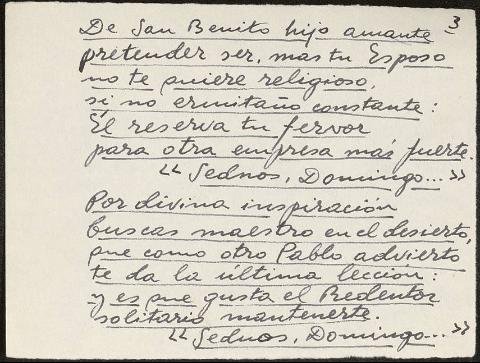 3
De San Benito hijo amante
pretender ser, mas tu Esposo
no te quiere religioso,
si no ermitaño constante:
Él reserva tu fervor
para otra empresa más fuerte.
<< Sednos, Domingo... >>
Por divina inspiración
buscas maestro en el desierto,
que como otro Pablo advierto
te da la última lección:
y es que gusta el Redentor
solitario mantenerte.
<< Sednos, Domingo... >>